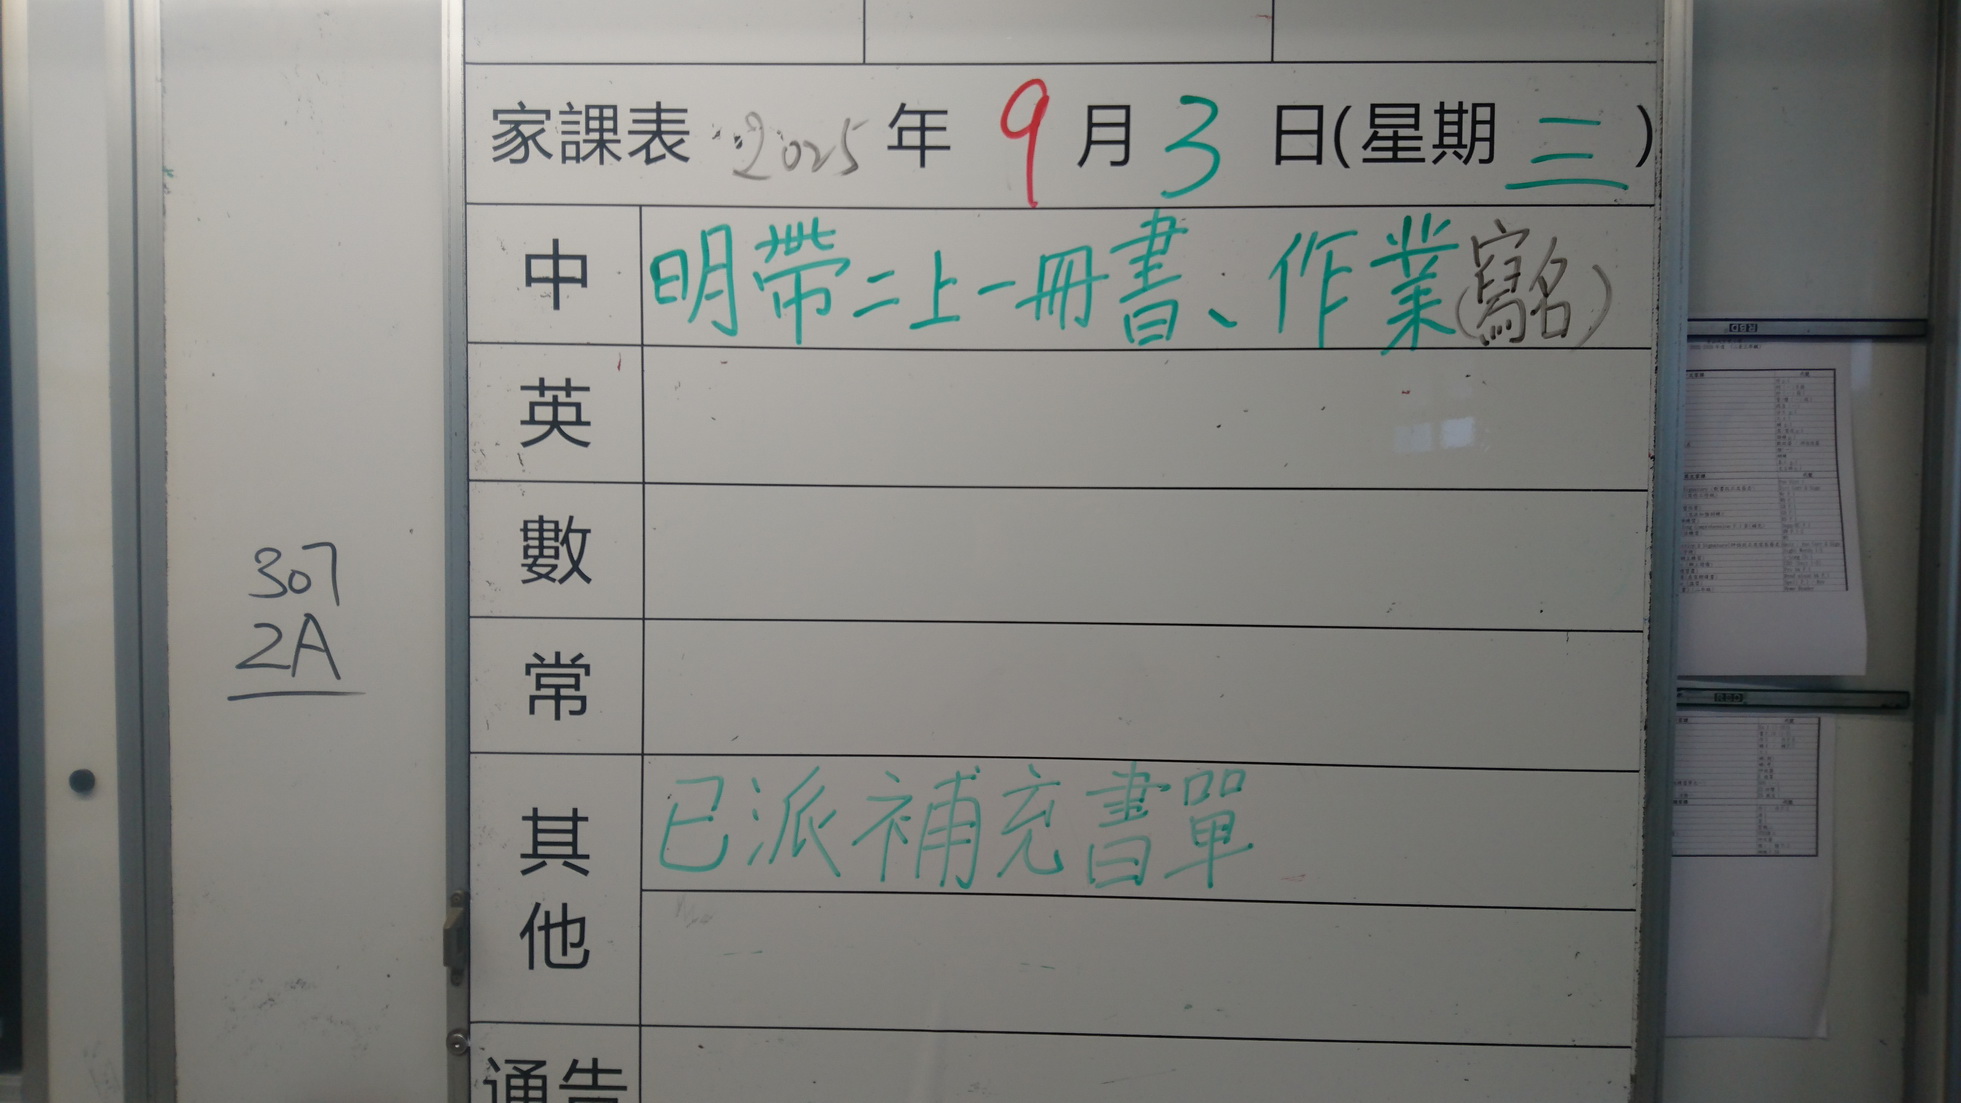 家課表 2025 年 9 月 3 日(星期 三)
中 明帶二上一冊書、作業(寫名)
英
數
常
其他 已派補充書單
通告
307
2A